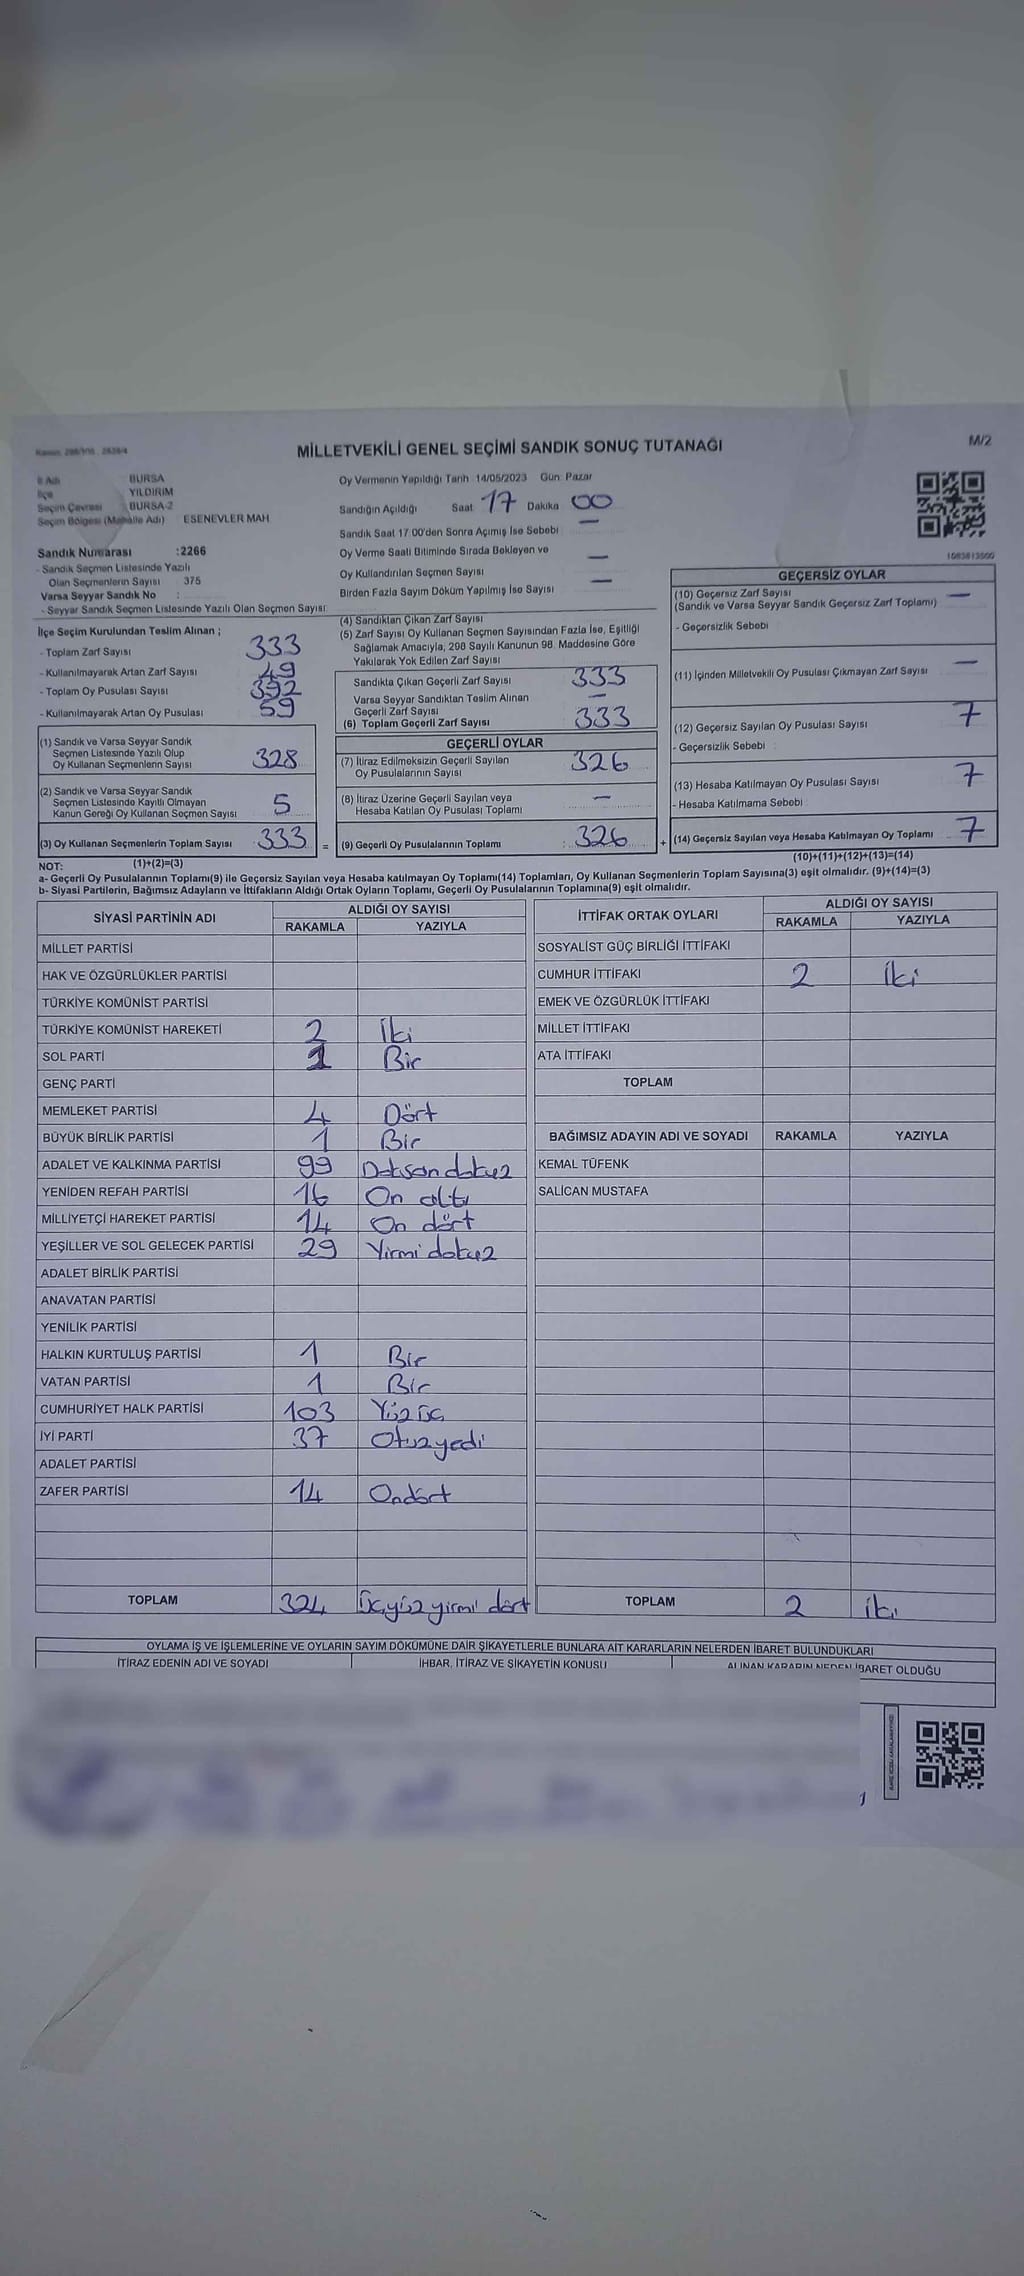 MİLLETVEKİLİ GENEL SEÇİMİ SANDIK SONUÇ TUTANAĞI
M/2
İl Adı BURSA
İlçe YILDIRIM
Seçim Çevresi BURSA-2
Seçim Bölgesi (Mahalle Adı) ESENEVLER MAH
Sandık Numarası :2266
- Sandık Seçmen Listesinde Yazılı
Olan Seçmenlerin Sayısı 375
Varsa Seyyar Sandık No :
- Seyyar Sandık Seçmen Listesinde Yazılı Olan Seçmen Sayısı:
Oy Vermenin Yapıldığı Tarih 14/05/2023 Gün: Pazar
Sandığın Açıldığı Saat 17 Dakika 00
Sandık Saat 17:00'den Sonra Açımış İse Sebebi —
Oy Verme Saati Bitiminde Sırada Bekleyen ve
Oy Kullandırılan Seçmen Sayısı —
Birden Fazla Sayım Döküm Yapılmış İse Sayısı —
1083813500
İlçe Seçim Kurulundan Teslim Alınan ;
- Toplam Zarf Sayısı 333
- Kullanılmayarak Artan Zarf Sayısı 49
- Toplam Oy Pusulası Sayısı 392
- Kullanılmayarak Artan Oy Pusulası 59
(1) Sandık ve Varsa Seyyar Sandık
Seçmen Listesinde Yazılı Olup
Oy Kullanan Seçmenlerin Sayısı 328
(2) Sandık ve Varsa Seyyar Sandık
Seçmen Listesinde Kayıtlı Olmayan
Kanun Gereği Oy Kullanan Seçmen Sayısı 5
(3) Oy Kullanan Seçmenlerin Toplam Sayısı : 333 =
(4) Sandıktan Çıkan Zarf Sayısı
(5) Zarf Sayısı Oy Kullanan Seçmen Sayısından Fazla İse, Eşitliği
Sağlamak Amacıyla, 298 Sayılı Kanunun 98. Maddesine Göre
Yakılarak Yok Edilen Zarf Sayısı
Sandıkta Çıkan Geçerli Zarf Sayısı 333
Varsa Seyyar Sandıktan Teslim Alınan
Geçerli Zarf Sayısı —
(6) Toplam Geçerli Zarf Sayısı 333
GEÇERLİ OYLAR
(7) İtiraz Edilmeksizin Geçerli Sayılan
Oy Pusulalarının Sayısı 326
(8) İtiraz Üzerine Geçerli Sayılan veya
Hesaba Katılan Oy Pusulası Toplamı —
(9) Geçerli Oy Pusulalarının Toplamı : 326 +
GEÇERSİZ OYLAR
(10) Geçersiz Zarf Sayısı —
(Sandık ve Varsa Seyyar Sandık Geçersiz Zarf Toplamı)
- Geçersizlik Sebebi
(11) İçinden Milletvekili Oy Pusulası Çıkmayan Zarf Sayısı —
(12) Geçersiz Sayılan Oy Pusulası Sayısı 7
- Geçersizlik Sebebi
(13) Hesaba Katılmayan Oy Pusulası Sayısı 7
- Hesaba Katılmama Sebebi
(14) Geçersiz Sayılan veya Hesaba Katılmayan Oy Toplamı 7
NOT: (1)+(2)=(3)
(10)+(11)+(12)+(13)=(14)
a- Geçerli Oy Pusulalarının Toplamı(9) ile Geçersiz Sayılan veya Hesaba katılmayan Oy Toplamı(14) Toplamları, Oy Kullanan Seçmenlerin Toplam Sayısına(3) eşit olmalıdır. (9)+(14)=(3)
b- Siyasi Partilerin, Bağımsız Adayların ve İttifakların Aldığı Ortak Oyların Toplamı, Geçerli Oy Pusulalarının Toplamına(9) eşit olmalıdır.
SİYASİ PARTİNİN ADI ALDIĞI OY SAYISI
RAKAMLA YAZIYLA
MİLLET PARTİSİ
HAK VE ÖZGÜRLÜKLER PARTİSİ
TÜRKİYE KOMÜNİST PARTİSİ
TÜRKİYE KOMÜNİST HAREKETİ 2 İki
SOL PARTİ 1 Bir
GENÇ PARTİ
MEMLEKET PARTİSİ 4 Dört
BÜYÜK BİRLİK PARTİSİ 1 Bir
ADALET VE KALKINMA PARTİSİ 99 Doksan dokuz
YENİDEN REFAH PARTİSİ 16 On altı
MİLLİYETÇİ HAREKET PARTİSİ 14 On dört
YEŞİLLER VE SOL GELECEK PARTİSİ 29 Yirmi dokuz
ADALET BİRLİK PARTİSİ
ANAVATAN PARTİSİ
YENİLİK PARTİSİ
HALKIN KURTULUŞ PARTİSİ 1 Bir
VATAN PARTİSİ 1 Bir
CUMHURİYET HALK PARTİSİ 103 Yüz üç
İYİ PARTİ 37 Otuzyedi
ADALET PARTİSİ
ZAFER PARTİSİ 14 Ondört
TOPLAM 324 Üçyüz yirmi dört
İTTİFAK ORTAK OYLARI ALDIĞI OY SAYISI
RAKAMLA YAZIYLA
SOSYALİST GÜÇ BİRLİĞİ İTTİFAKI
CUMHUR İTTİFAKI 2 İki
EMEK VE ÖZGÜRLÜK İTTİFAKI
MİLLET İTTİFAKI
ATA İTTİFAKI
TOPLAM
BAĞIMSIZ ADAYIN ADI VE SOYADI RAKAMLA YAZIYLA
KEMAL TÜFENK
SALİCAN MUSTAFA
TOPLAM 2 iki
OYLAMA İŞ VE İŞLEMLERİNE VE OYLARIN SAYIM DÖKÜMÜNE DAİR ŞİKAYETLERLE BUNLARA AİT KARARLARIN NELERDEN İBARET BULUNDUKLARI
İTİRAZ EDENİN ADI VE SOYADI İHBAR, İTİRAZ VE ŞİKAYETİN KONUSU ALINAN KARARIN NEDEN İBARET OLDUĞU